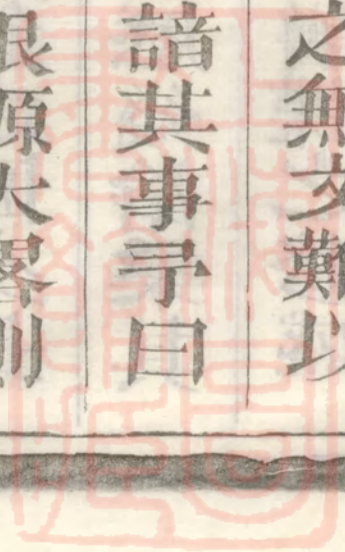 之無文難以
諳其事予曰
根原大畧則